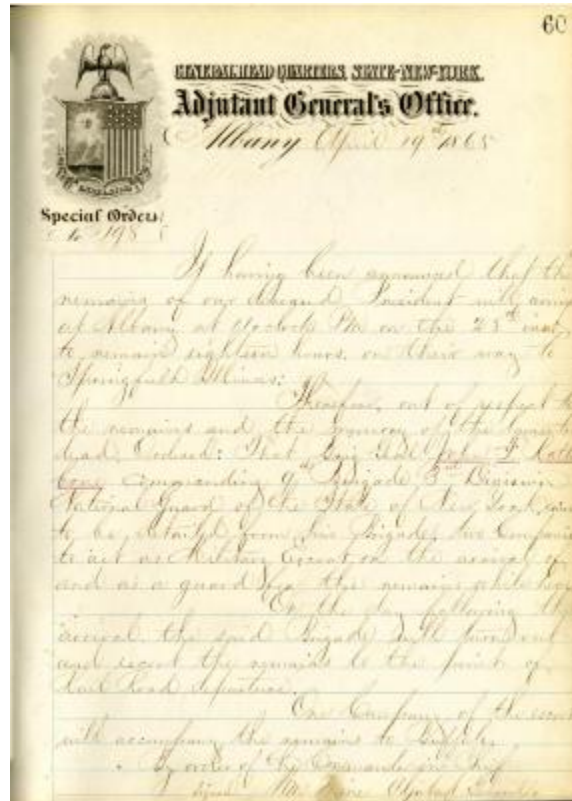 60
GENERAL HEAD QUARTERS, STATE-NEW-YORK.
Adjutant General's Office.
Albany April 19th 1865
Special Orders
No 198
It having been announced that the
remains of our deceased President will arrive
at Albany at o'clock PM on the 25th inst
to remain eighteen hours, on their way to
Springfield Illinois:
Therefore, out of respect to
the remains and the memory of the
dead, Ordered: That Brig Genl John F Rath
bone commanding 9th Brigade 3rd Division
National Guard of the State of New York, cause
to be detailed from his Brigade, two Companies
to act as Military Escort on the arrival of
and as a guard for the remains while here
On the day following the
arrival, the said Brigade will turn out
and escort the remains to the point of
Rail Road departure.
One Company of the escort
will accompany the remains to Buffalo.
By order of the Commander in Chief
signed Wm Irvine Adjutant General